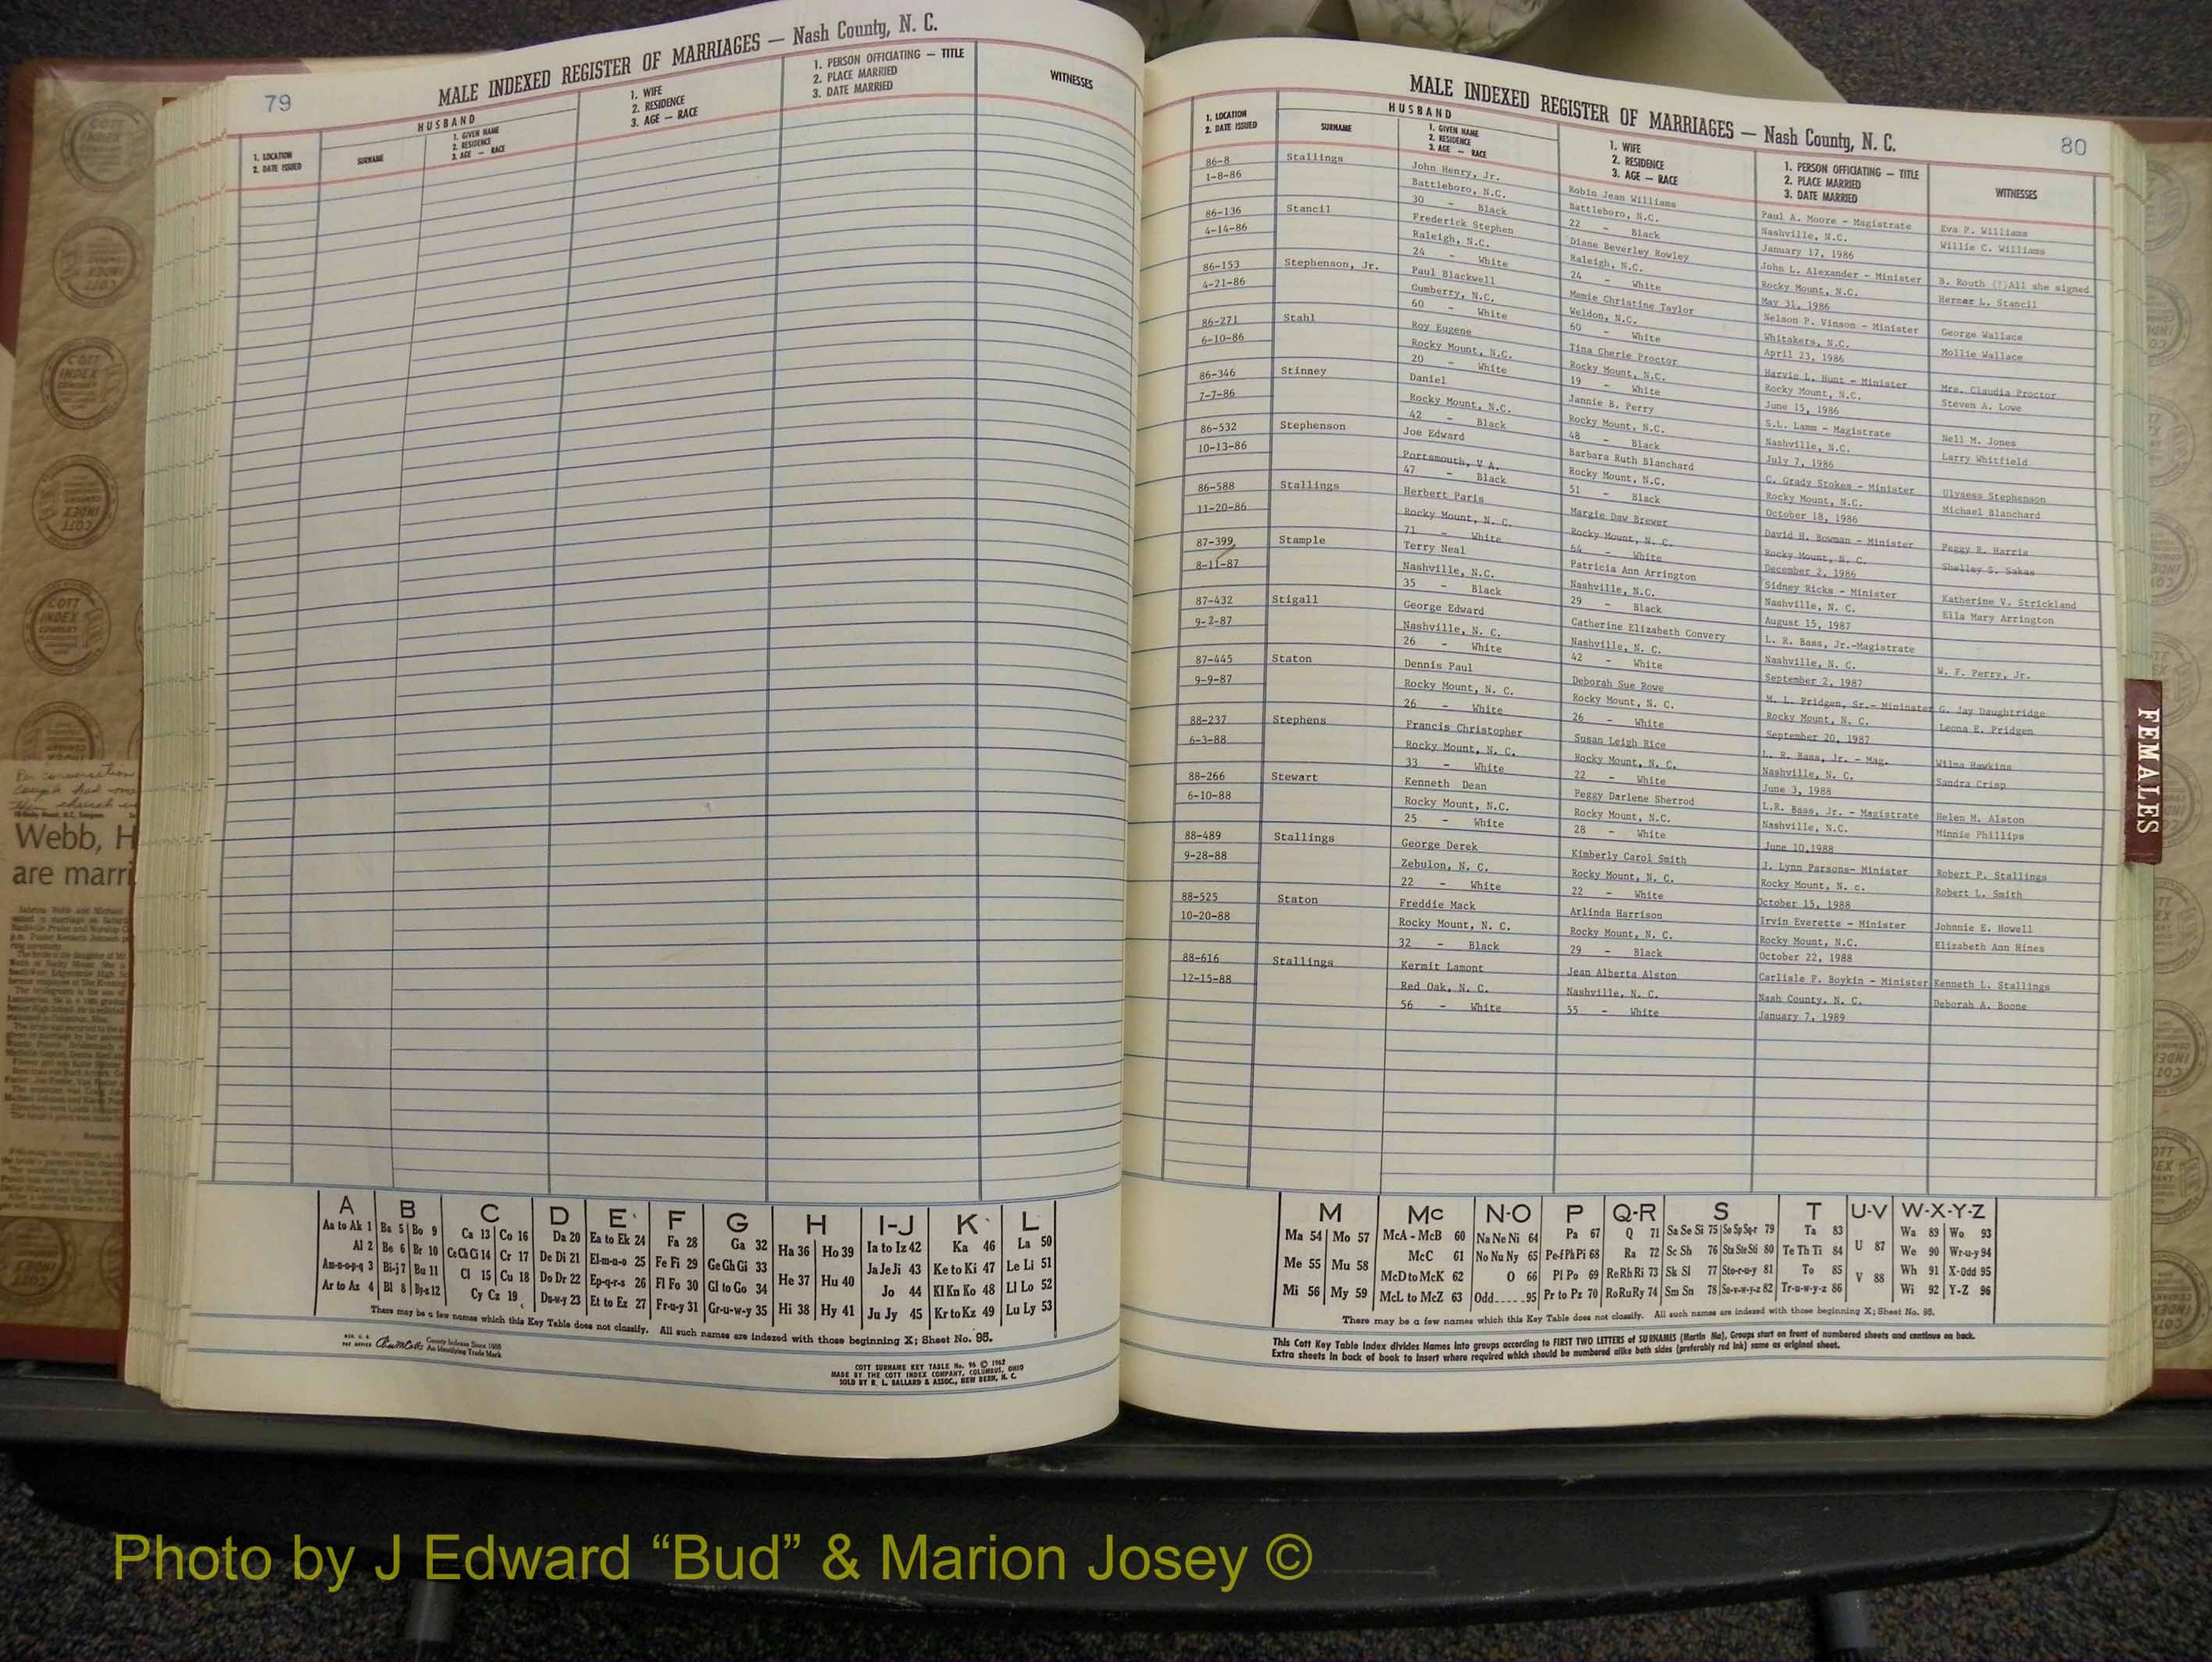 79
MALE INDEXED REGISTER OF MARRIAGES — Nash County, N. C.
1. LOCATION
2. DATE ISSUED
HUSBAND
SURNAME
1. GIVEN NAME
2. RESIDENCE
3. AGE — RACE
1. WIFE
2. RESIDENCE
3. AGE — RACE
1. PERSON OFFICIATING — TITLE
2. PLACE MARRIED
3. DATE MARRIED
WITNESSES
A B C D E F G H I-J K L
Aa to Ak 1 Ba 5 Bo 9 Ca 13 Co 16 Da 20 Ea to Ek 24 Fa 28 Ga 32 Ha 36 Ho 39 Ia to Iz 42 Ka 46 La 50
Al 2 Be 6 Br 10 Ce Ch Ci 14 Cr 17 De Di 21 El-m-n-o 25 Fe Fi 29 Ge Gh Gi 33 Ja Je Ji 43 Ke to Ki 47 Le Li 51
Am-n-o-p-q 3 Bi-j 7 Bu 11 Cl 15 Cu 18 Do Dr 22 Ep-q-r-s 26 Fl Fo 30 Gl to Go 34 He 37 Hu 40 Jo 44 Kl Kn Ko 48 Ll Lo 52
Ar to Az 4 Bl 8 By-z 12 Cy Cz 19 Du-w-y 23 Et to Ez 27 Fr-u-y 31 Gr-u-w-y 35 Hi 38 Hy 41 Ju Jy 45 Kr to Kz 49 Lu Ly 53
There may be a few names which this Key Table does not classify. All such names are indexed with those beginning X; Sheet No. 95.
County Indexes Since 1888
An Identifying Trade Mark
COTT SURNAME KEY TABLE No. 96 © 1962
MADE BY THE COTT INDEX COMPANY, COLUMBUS, OHIO
SOLD BY R. L. BALLARD & ASSOC., NEW BERN, N. C.
80
MALE INDEXED REGISTER OF MARRIAGES — Nash County, N. C.
1. LOCATION
2. DATE ISSUED
HUSBAND
SURNAME
1. GIVEN NAME
2. RESIDENCE
3. AGE — RACE
1. WIFE
2. RESIDENCE
3. AGE — RACE
1. PERSON OFFICIATING — TITLE
2. PLACE MARRIED
3. DATE MARRIED
WITNESSES
86-8 Stallings John Henry, Jr. Robin Jean Williams Paul A. Moore - Magistrate Eva P. Williams
1-8-86 Battleboro, N.C. Battleboro, N.C. Nashville, N.C. Willie C. Williams
30 - Black 22 - Black January 17, 1986
86-136 Stancil Frederick Stephen Diane Beverley Rowley John L. Alexander - Minister B. Routh (?)All she signed
4-14-86 Raleigh, N.C. Raleigh, N.C. Rocky Mount, N.C. Hermer L. Stancil
24 - White 24 - White May 31, 1986
86-153 Stephenson, Jr. Paul Blackwell Mamie Christine Taylor Nelson P. Vinson - Minister George Wallace
4-21-86 Gumberry, N.C. Weldon, N.C. Whitakers, N.C. Mollie Wallace
60 - White 60 - White April 23, 1986
86-271 Stahl Roy Eugene Tina Cherie Proctor Harvie L. Hunt - Minister Mrs. Claudia Proctor
6-10-86 Rocky Mount, N.C. Rocky Mount, N.C. Rocky Mount, N.C. Steven A. Lowe
20 - White 19 - White June 15, 1986
86-346 Stinney Daniel Jannie B. Perry S.L. Lamm - Magistrate Nell M. Jones
7-7-86 Rocky Mount, N.C. Rocky Mount, N.C. Nashville, N.C. Larry Whitfield
42 - Black 48 - Black July 7, 1986
86-532 Stephenson Joe Edward Barbara Ruth Blanchard C. Grady Stokes - Minister Ulysess Stephenson
10-13-86 Portsmouth, V A. Rocky Mount, N.C. Rocky Mount, N.C. Michael Blanchard
47 - Black 51 - Black October 18, 1986
86-588 Stallings Herbert Paris Margie Daw Brewer David H. Bowman - Minister Peggy R. Harris
11-20-86 Rocky Mount, N. C. Rocky Mount, N. C. Rocky Mount, N. C. Shelley S. Sakas
71 - White 64 - White December 2, 1986
87-399 Stample Terry Neal Patricia Ann Arrington Sidney Ricks - Minister Katherine V. Strickland
8-11-87 Nashville, N.C. Nashville, N.C. Nashville, N. C. Ella Mary Arrington
35 - Black 29 - Black August 15, 1987
87-432 Stigall George Edward Catherine Elizabeth Convery L. R. Bass, Jr.-Magistrate
9-2-87 Nashville, N. C. Nashville, N. C. Nashville, N. C. W. F. Perry, Jr.
26 - White 42 - White September 2, 1987
87-445 Staton Dennis Paul Deborah Sue Rowe M. L. Pridgen, Sr.- Mininster G. Jay Daughtridge
9-9-87 Rocky Mount, N. C. Rocky Mount, N. C. Rocky Mount, N. C. Leona E. Pridgen
26 - White 26 - White September 20, 1987
88-237 Stephens Francis Christopher Susan Leigh Rice L. R. Bass, Jr. - Mag. Wilma Hawkins
6-3-88 Rocky Mount, N. C. Rocky Mount, N. C. Nashville, N. C. Sandra Crisp
33 - White 22 - White June 3, 1988
88-266 Stewart Kenneth Dean Peggy Darlene Sherrod L.R. Bass, Jr. - Magistrate Helen M. Alston
6-10-88 Rocky Mount, N.C. Rocky Mount, N.C. Nashville, N.C. Minnie Phillips
25 - White 28 - White June 10,1988
88-489 Stallings George Derek Kimberly Carol Smith J. Lynn Parsons- Minister Robert P. Stallings
9-28-88 Zebulon, N. C. Rocky Mount, N. C. Rocky Mount, N. c. Robert L. Smith
22 - White 22 - White October 15, 1988
88-525 Staton Freddie Mack Arlinda Harrison Irvin Everette - Minister Johnnie E. Howell
10-20-88 Rocky Mount, N. C. Rocky Mount, N. C. Rocky Mount, N.C. Elizabeth Ann Hines
32 - Black 29 - Black October 22, 1988
88-616 Stallings Kermit Lamont Jean Alberta Alston Carlisle F. Boykin - Minister Kenneth L. Stallings
12-15-88 Red Oak, N. C. Nashville, N. C. Nash County, N. C. Deborah A. Boone
56 - White 55 - White January 7, 1989
M Mc N-O P Q-R S T U-V W-X-Y-Z
Ma 54 Mo 57 McA - McB 60 Na Ne Ni 64 Pa 67 Q 71 Sa Se Si 75 So Sp Sq-r 79 Ta 83 U 87 Wa 89 Wo 93
Me 55 Mu 58 McC 61 No Nu Ny 65 Pe-f Ph Pi 68 Ra 72 Sc Sh 76 Sta Ste Sti 80 Te Th Ti 84 We 90 Wr-u-y 94
McD to McK 62 O 66 Pl Po 69 Re Rh Ri 73 Sk Sl 77 Sto-r-u-y 81 To 85 V 88 Wh 91 X-Odd 95
Mi 56 My 59 McL to McZ 63 Odd 95 Pr to Pz 70 Ro Ru Ry 74 Sm Sn 78 Su-v-w-y-z 82 Tr-u-w-y-z 86 Wi 92 Y-Z 96
There may be a few names which this Key Table does not classify. All such names are indexed with those beginning X; Sheet No. 95.
This Cott Key Table Index divides Names into groups according to FIRST TWO LETTERS of SURNAMES (Martin Ma), Groups start on front of numbered sheets and continue on back.
Extra sheets in back of book to insert where required which should be numbered alike both sides (preferably red ink) same as original sheet.
FEMALES
COTT INDEX COMPANY
Webb, H
are marri
Photo by J Edward “Bud” & Marion Josey ©